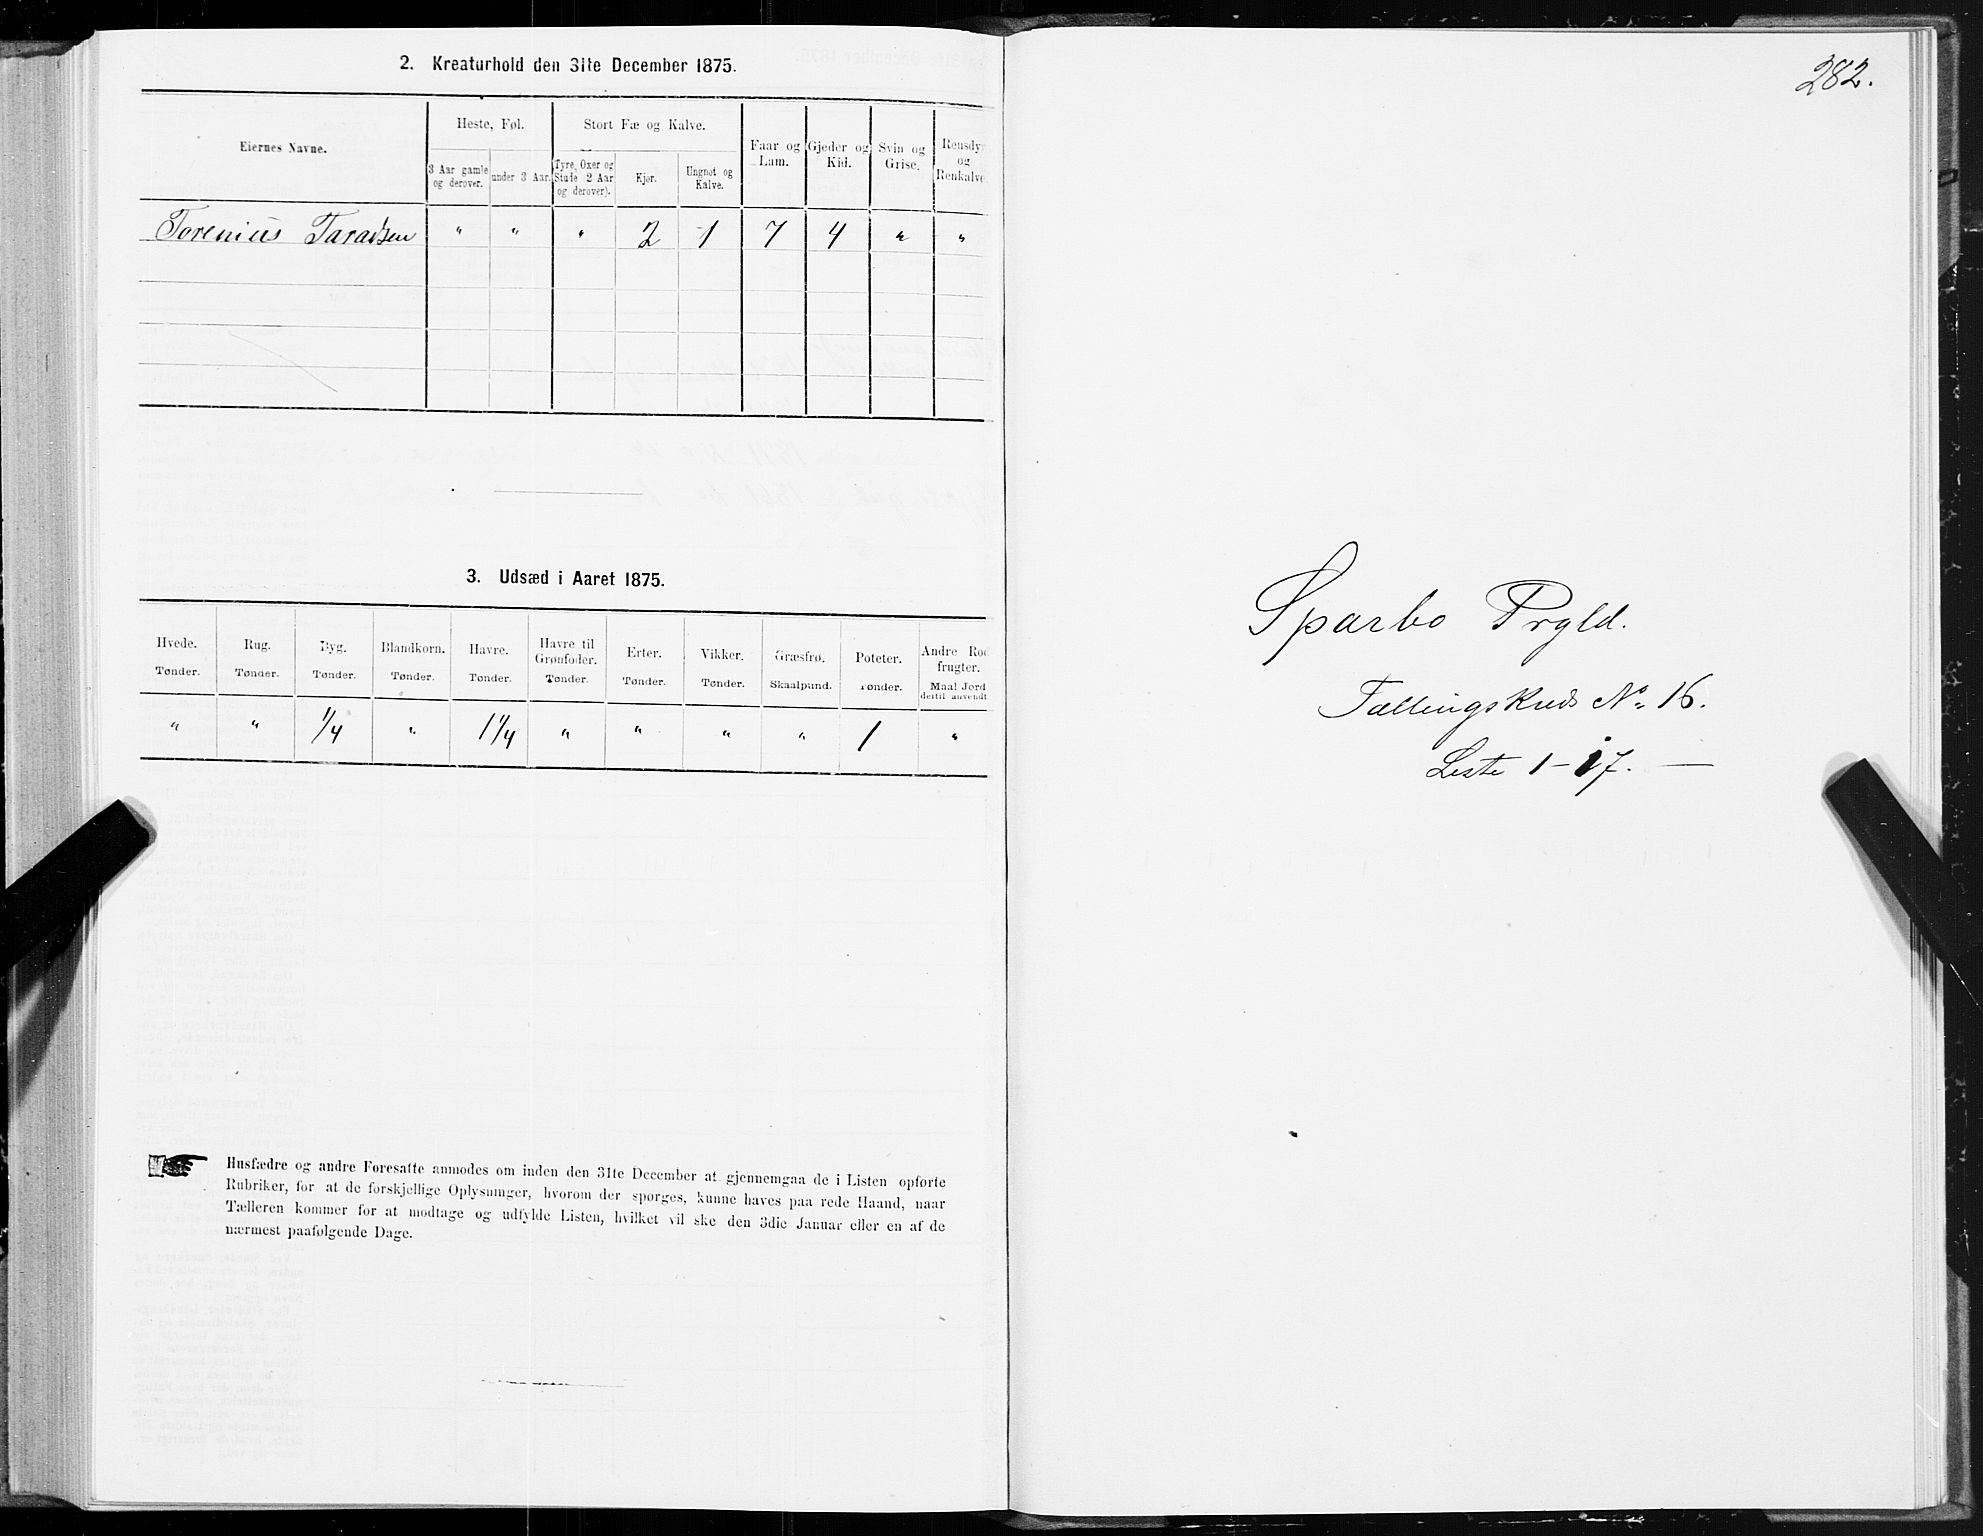 2. Kreaturhold den 31te December 1875.
Eiernes Navne.
Heste, Føl.
Stort Fæ og Kalve.
Faar og Lam.
Gjeder og Kid.
Svin og Grise.
Rensdyr og Renkalve.
3 Aar gamle og derover.
under 3 Aar.
Tyre, Oxer og Stude 2 Aar og derover).
Kjør.
Ungnøt og Kalve.
Torenius Taraldsen " " " 2 1 7 4 " "
3. Udsæd i Aaret 1875.
Hvede. Rug. Byg. Blandkorn. Havre. Havre til Grønfoder. Erter. Vikker. Græsfrø. Poteter. Andre Rodfrugter.
Tønder. Tønder. Tønder. Tønder. Tønder. Tønder. Tønder. Tønder. Skaalpund. Tønder. Maal Jord dertil anvendt
" " 1/4 " 1 1/4 " " " " 1 "
Husfædre og andre Foresatte anmodes om inden den 31te December at gjennemgaa de i Listen opførte
Rubriker, for at de forskjellige Oplysninger, hvorom der spørges, kunne haves paa rede Haand, naar
Tælleren kommer for at modtage og udfylde Listen, hvilket vil ske den 3die Januar eller en af de
nærmest paafølgende Dage.
282.
Sparbo Prgld.
Tællingskreds No 16.
Liste 1-17. —